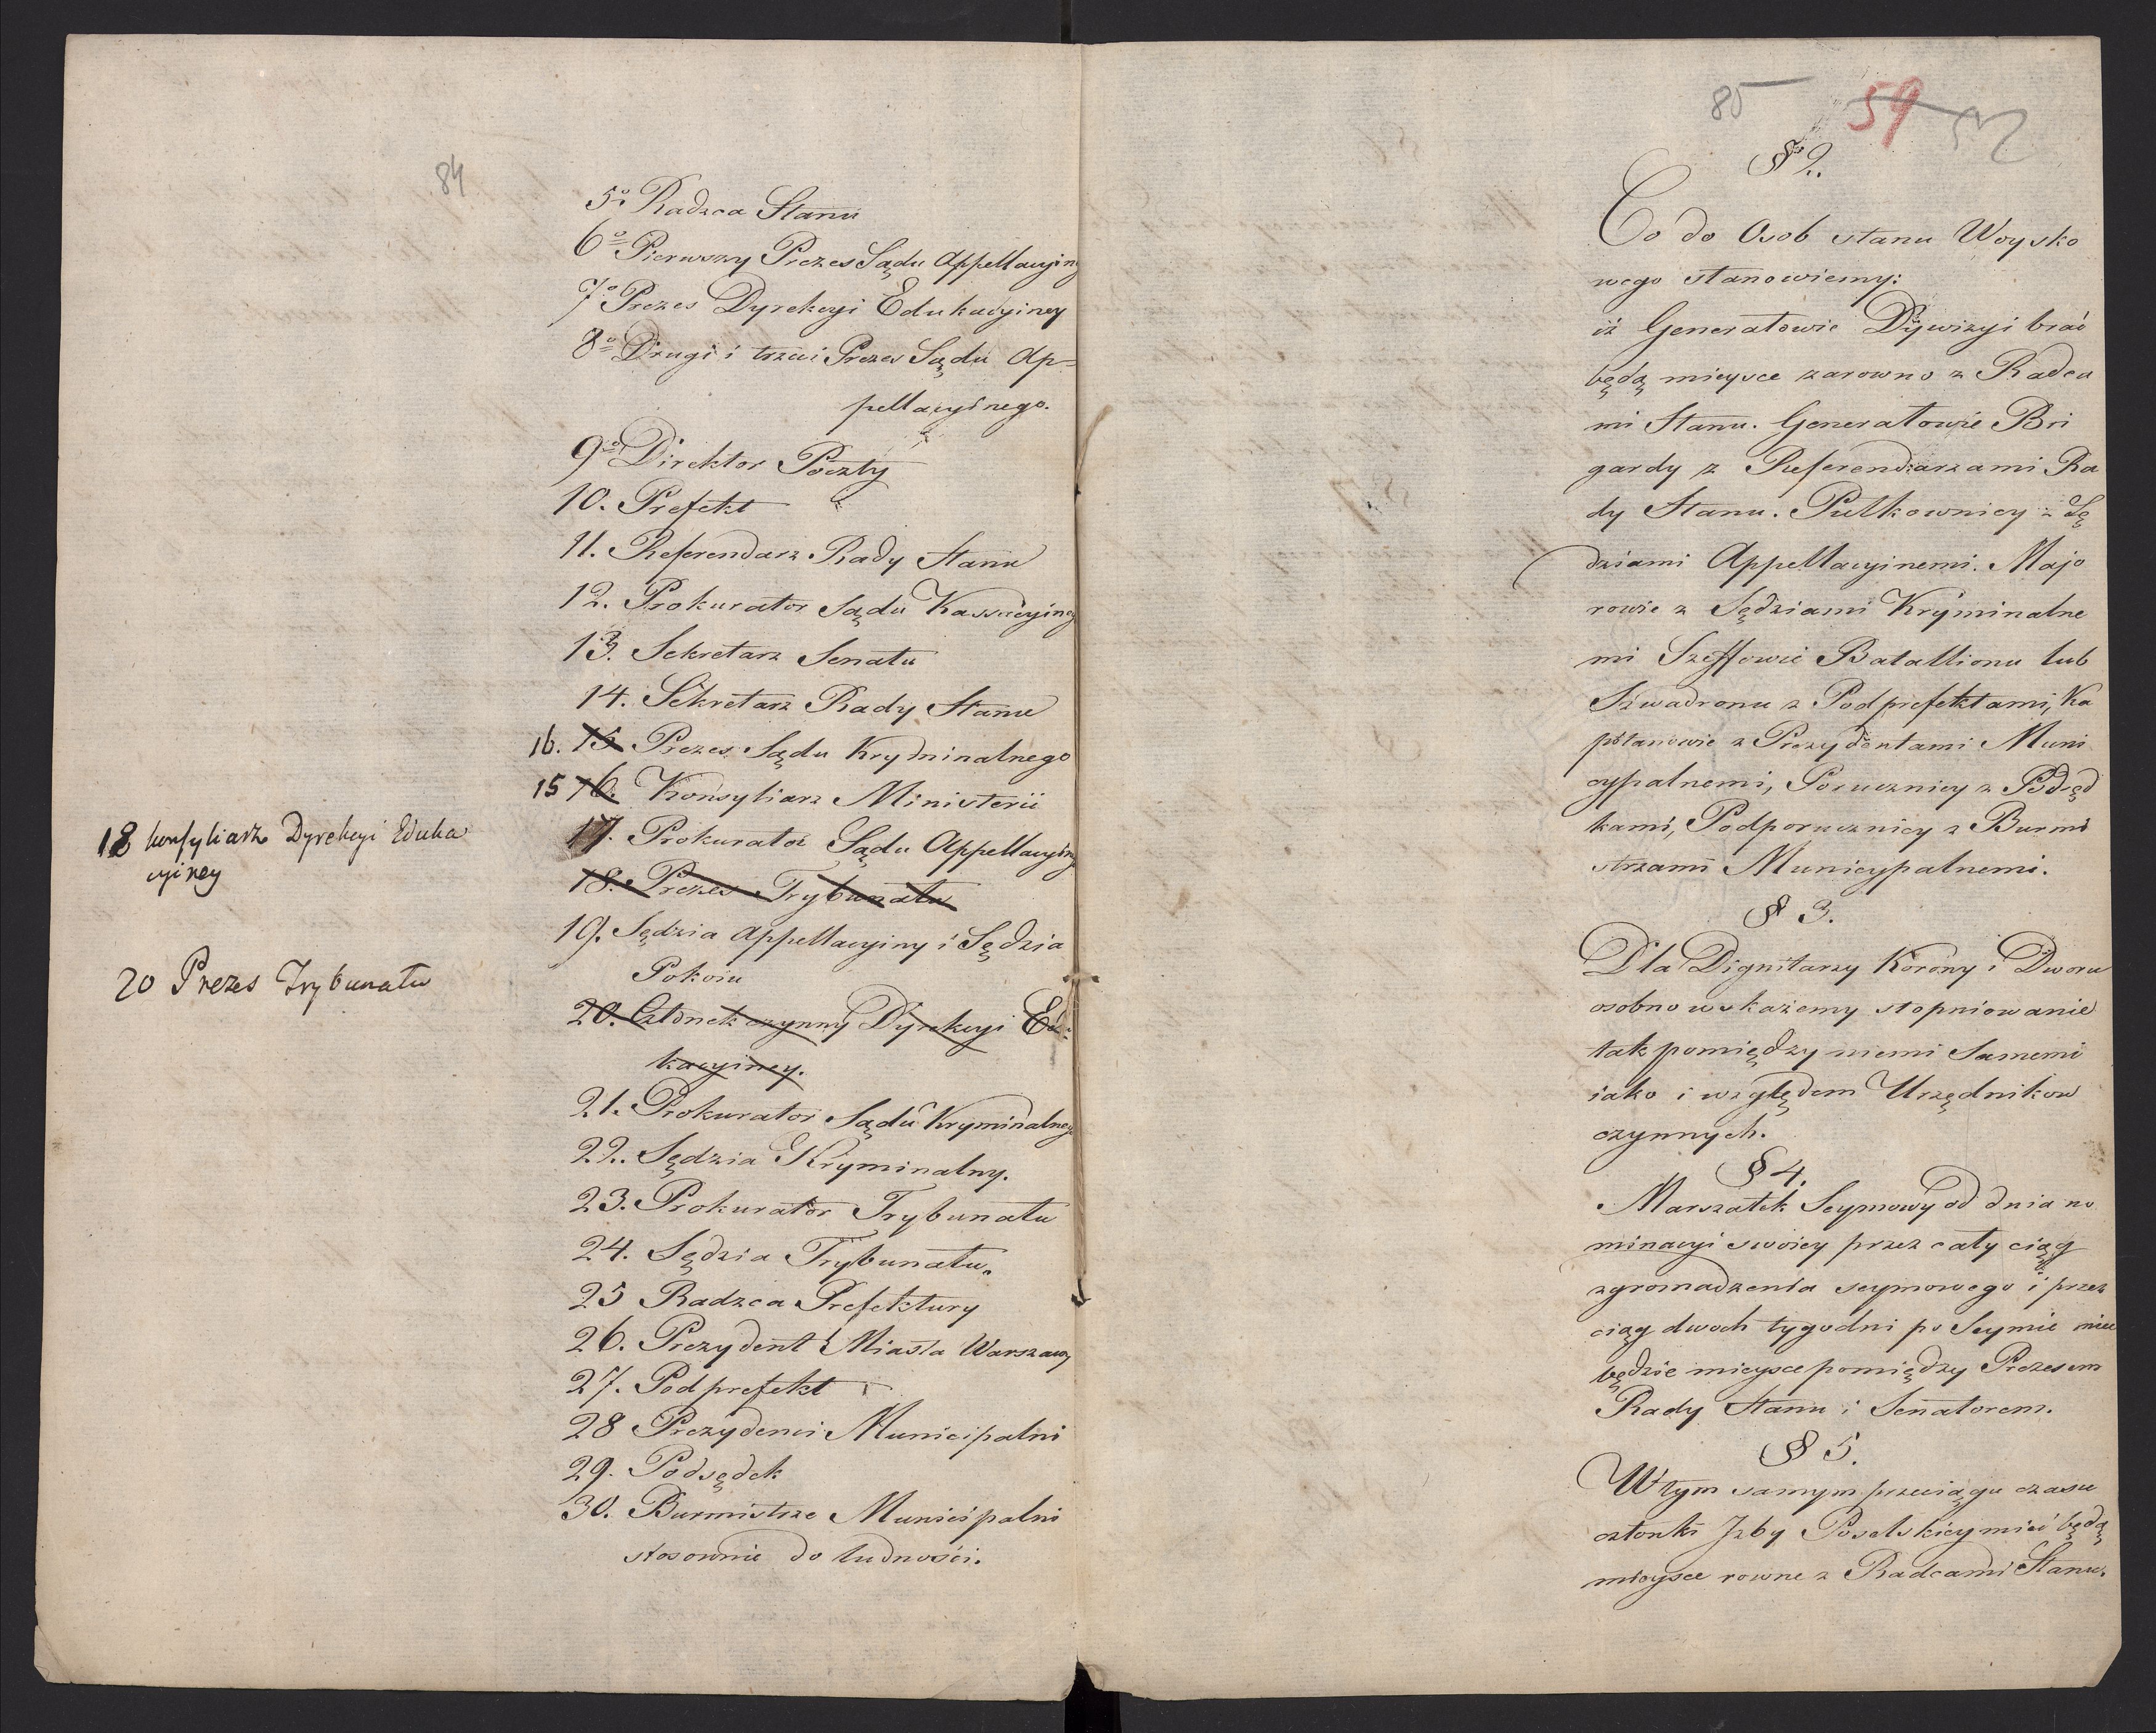 84
5º Radzca Stanu
6º Pierwszy Prezes Sądu Appellacyjn
7º Prezes Dyrekcyi Edukacyiney
8º Drugi i trzeci Prezes Sądu Ap=
pellacyinego.
9º Direktor Poczty
10. Prefekt
11. Referendarz Rady Stanu
12. Prokurator Sądu Kassacyineg
13. Sekretarz Senatu
14. Sekretarz Rady Stanu
16. 15. Prezes Sądu Kryminalnego
15 16. Konsyliarz Ministerii
17. Prokurator Sądu Appellacyin
18 konsyliarz Dyrekcyi Eduka
cyiney
18. Prezes Trybunatu
19. Sędzia Appellacyiny i Sędzia
Pokoiu
20 Prezes Trybunatu
20. Członek czynny Dyrekcyi Edu-
kacyiney.
21. Prokurator Sądu Kryminalneg
22. Sędzia Kryminalny.
23. Prokurator Trybunatu
24. Sędzia Trybunatu.
25 Radzca Prefektury
26. Prezydent Miasta Warszawy
27. Podprefekt
28 Prezydenci Municipalni
29. Podsędek
30. Burmistrze Municipalni
stosownie do ludności.
85 59 52
§ 2.
Co do Osob stanu Woysko
wego stanowiemy:
iż Generałowie Dywizyi brać
będą mieysce zarowno z Radca
mi Stanu. Generałowie Bri
gardy z Referendarzami Ra
dy Stanu. Pułkownicy z Sę
dziami Appellacyinemi. Majo
rowie z Sędziami Kryminalne
mi Szeffowie Batallionu lub
Szwadronu z Podprefektami, Ka
pitanowie z Prezydentami Muni
cypalnemi, Porucznicy z Podsęd
kami, Podporucznicy z Burmi
strzami Municypalnemi.
§ 3.
Dla Dignitarzy Korony i Dworu
osobno wskażemy stopniowanie
tak pomiędzy niemi Samemi
iako i względem Urzędnikow
czynnych.
§ 4.
Marszałek Seymowy od dnia no
minacyi swoiey przez cały ciąg
zgromadzenia seymowego i przez
ciąg dwoch tygodni po Seymie mieć
będzie mieysce pomiędzy Prezesem
Rady Stanu i Senatorem.
§ 5.
W tym samym przeciągu czasu
członki Izby Poselskiey mieć będą
mieysce rowne z Radcami Stanu.